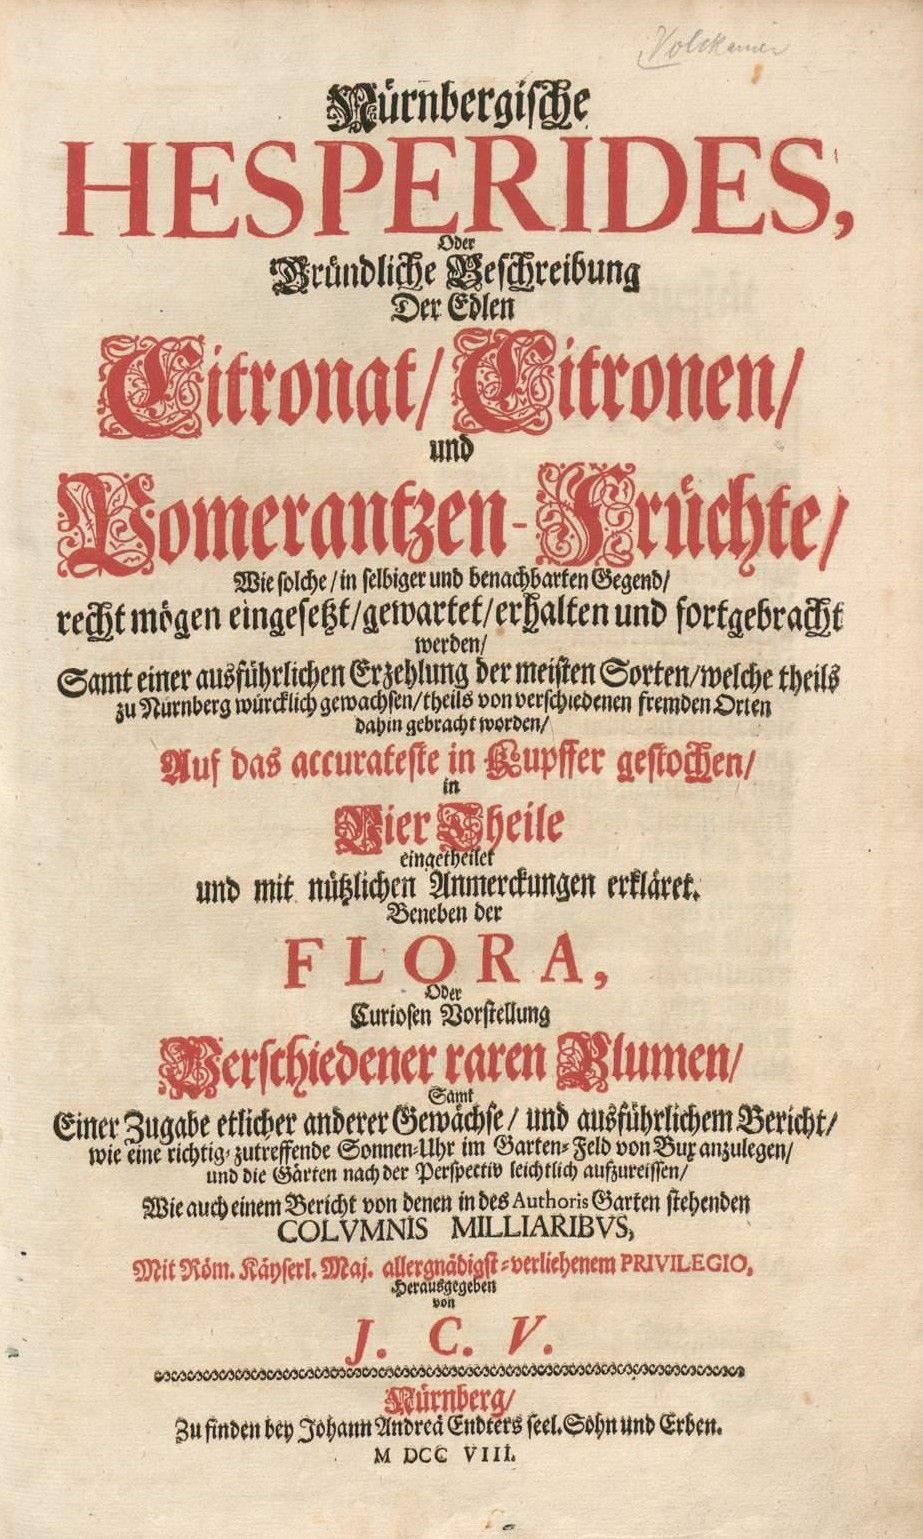 Volckamer
Nürnbergische
HESPERIDES,
Oder
Gründliche Beschreibung
Der Edlen
Citronat/ Citronen/
und
Pomerantzen-Früchte/
Wie solche/ in selbiger und benachbarten Gegend/
recht mögen eingesetzt/ gewartet/ erhalten und fortgebracht
werden/
Samt einer ausführlichen Erzehlung der meisten Sorten/ welche theils
zu Nürnberg würcklich gewachsen/ theils von verschiedenen fremden Orten
dahin gebracht worden/
Auf das accurateste in Kupffer gestochen/
in
Vier Theile
eingetheilet
und mit nützlichen Anmerckungen erkläret.
Beneben der
FLORA,
Oder
Curiosen Vorstellung
Verschiedener raren Blumen/
Samt
Einer Zugabe etlicher anderer Gewächse/ und ausführlichem Bericht/
wie eine richtig-zutreffende Sonnen-Uhr im Garten-Feld von Bux anzulegen/
und die Gärten nach der Perspectiv leichtlich aufzureissen/
Wie auch einem Bericht von denen in des Authoris Garten stehenden
COLVMNIS MILLIARIBVS,
Mit Röm. Käyserl. Maj. allergnädigst-verliehenem PRIVILEGIO,
Herausgegeben
von
J. C. V.
Nürnberg/
Zu finden bey Johann Andreä Endters seel. Sohn und Erben.
M DCC VIII.